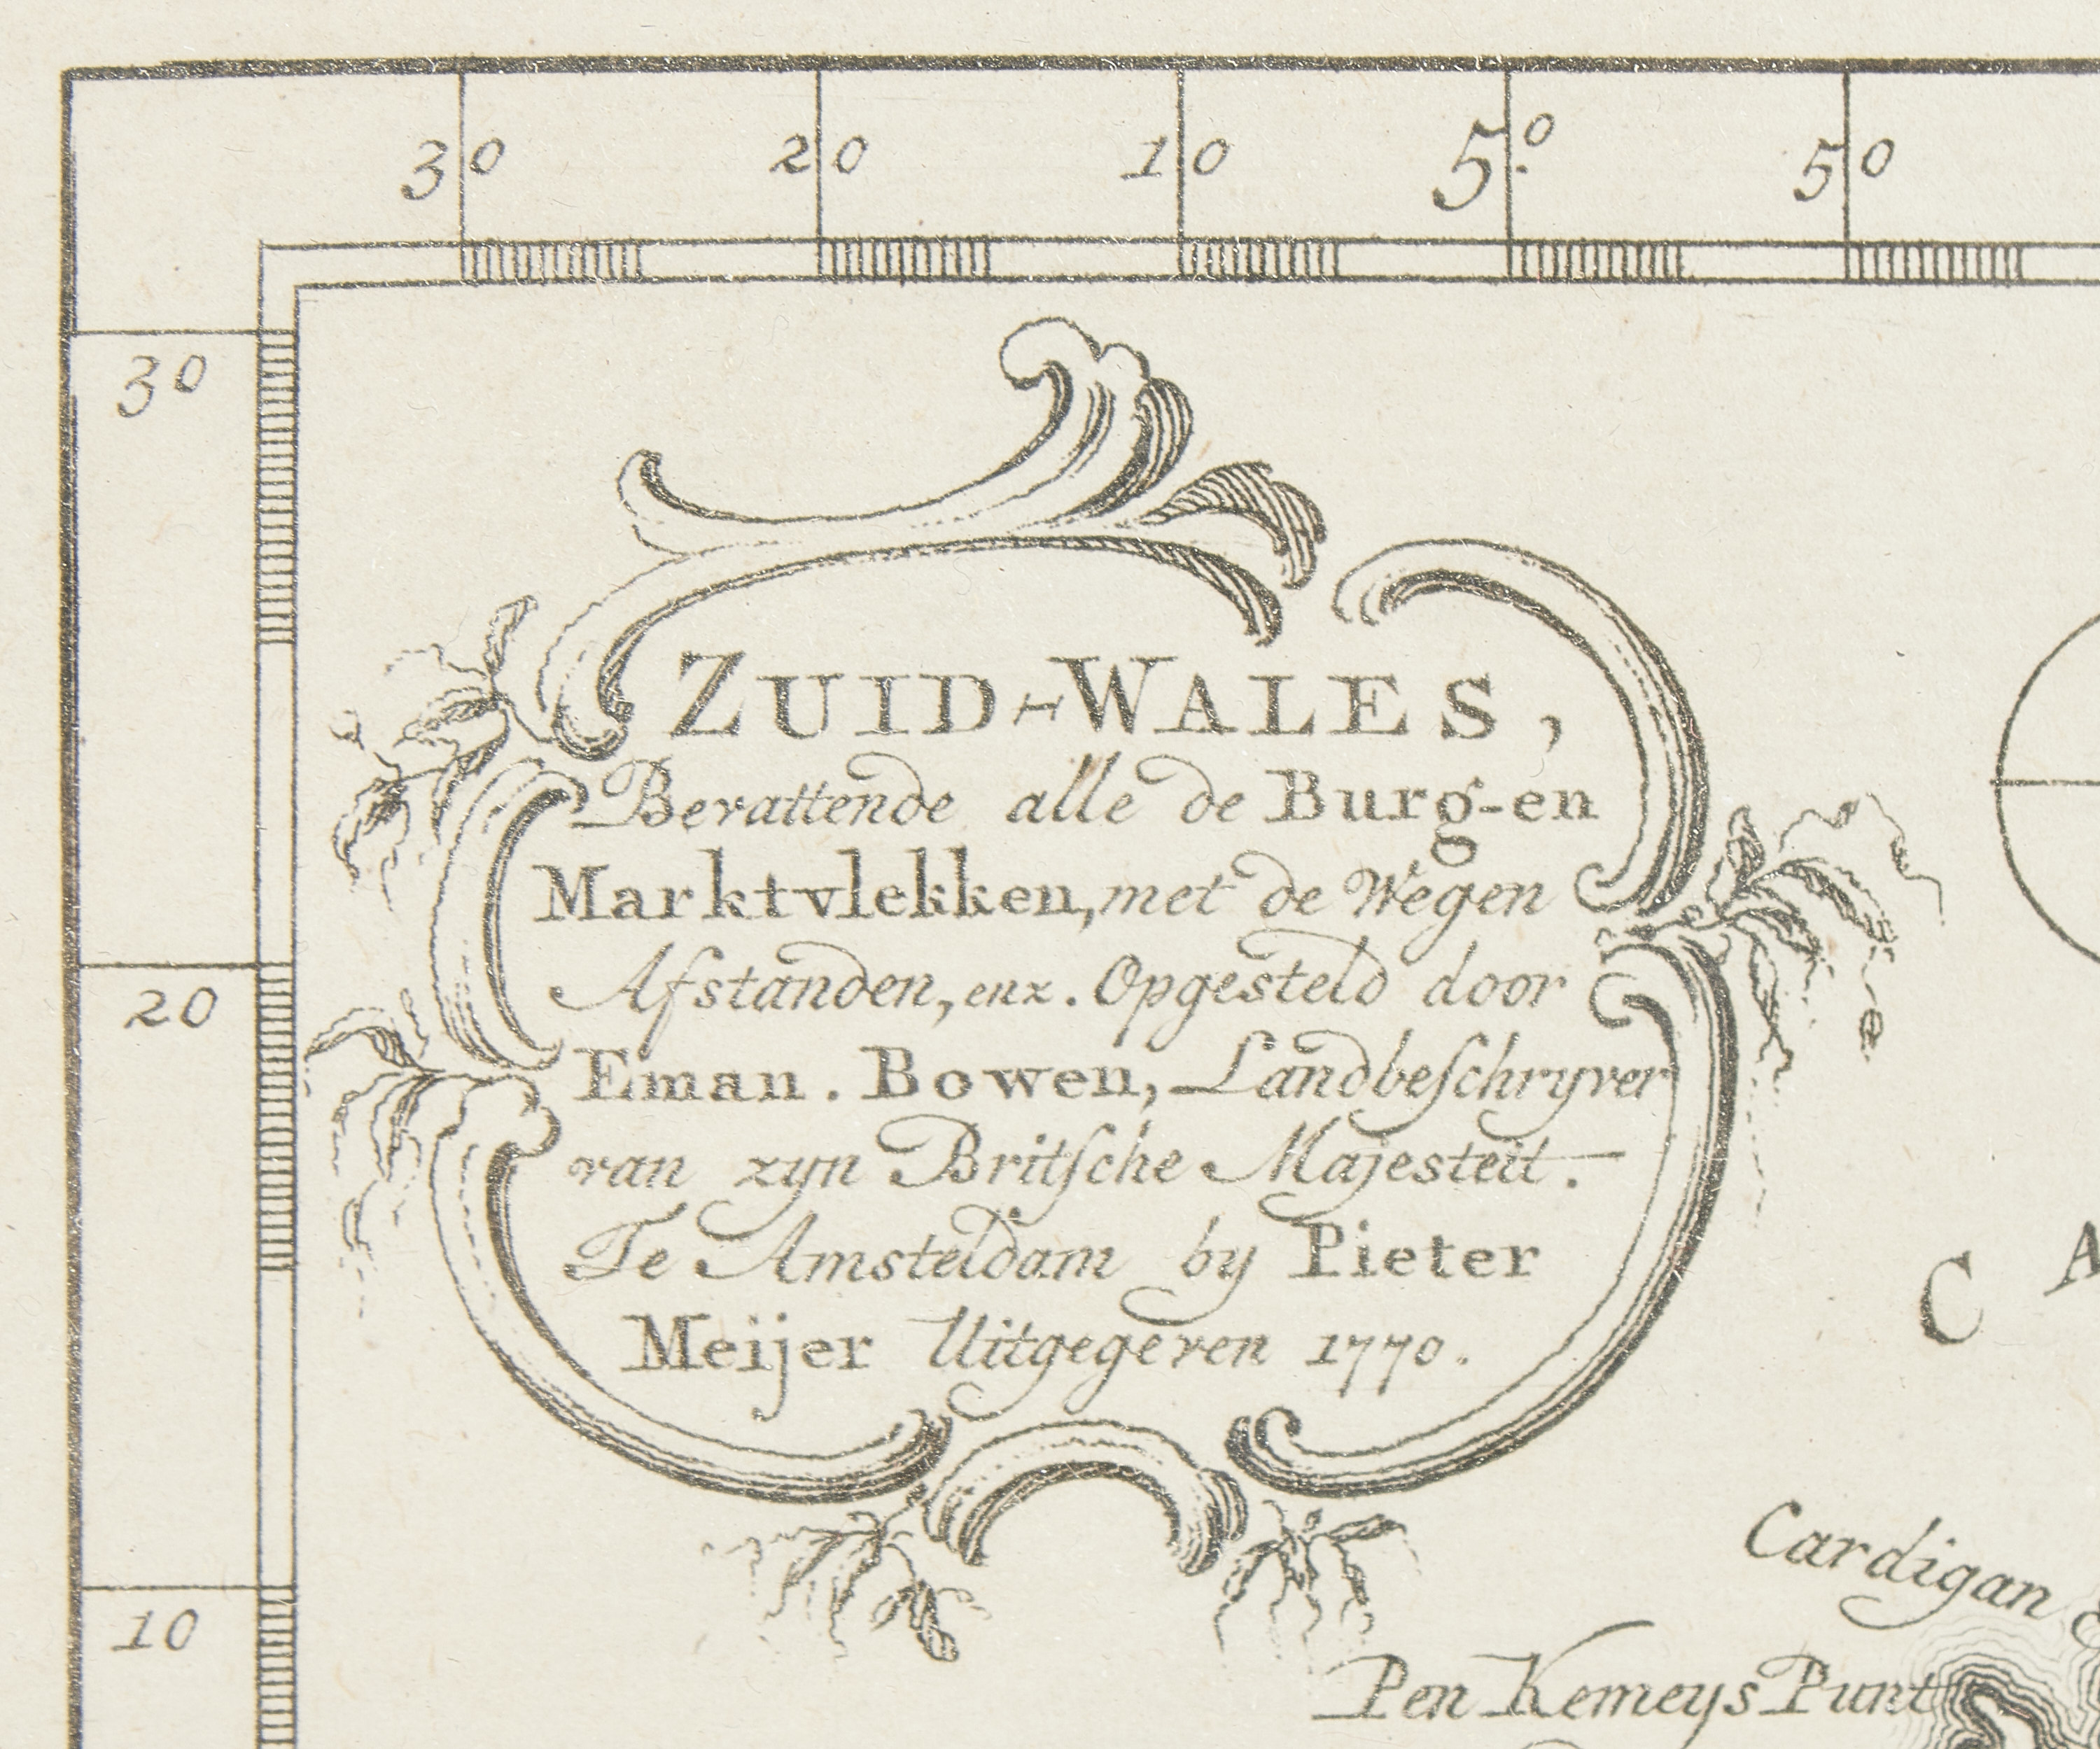 30 20 10 5.° 50
30
ZUID-WALES,
Bevattende alle de Burg-en
Marktvlekken, met de Wegen
Afstanden, enz. Opgesteld door
Eman. Bowen, Landbeſchryver
van zyn Britſche Majesteit.
Te Amsteldam by Pieter
Meijer Uitgegeven 1770.
20
10
C A
Cardigan
Pen Kemeys Punt